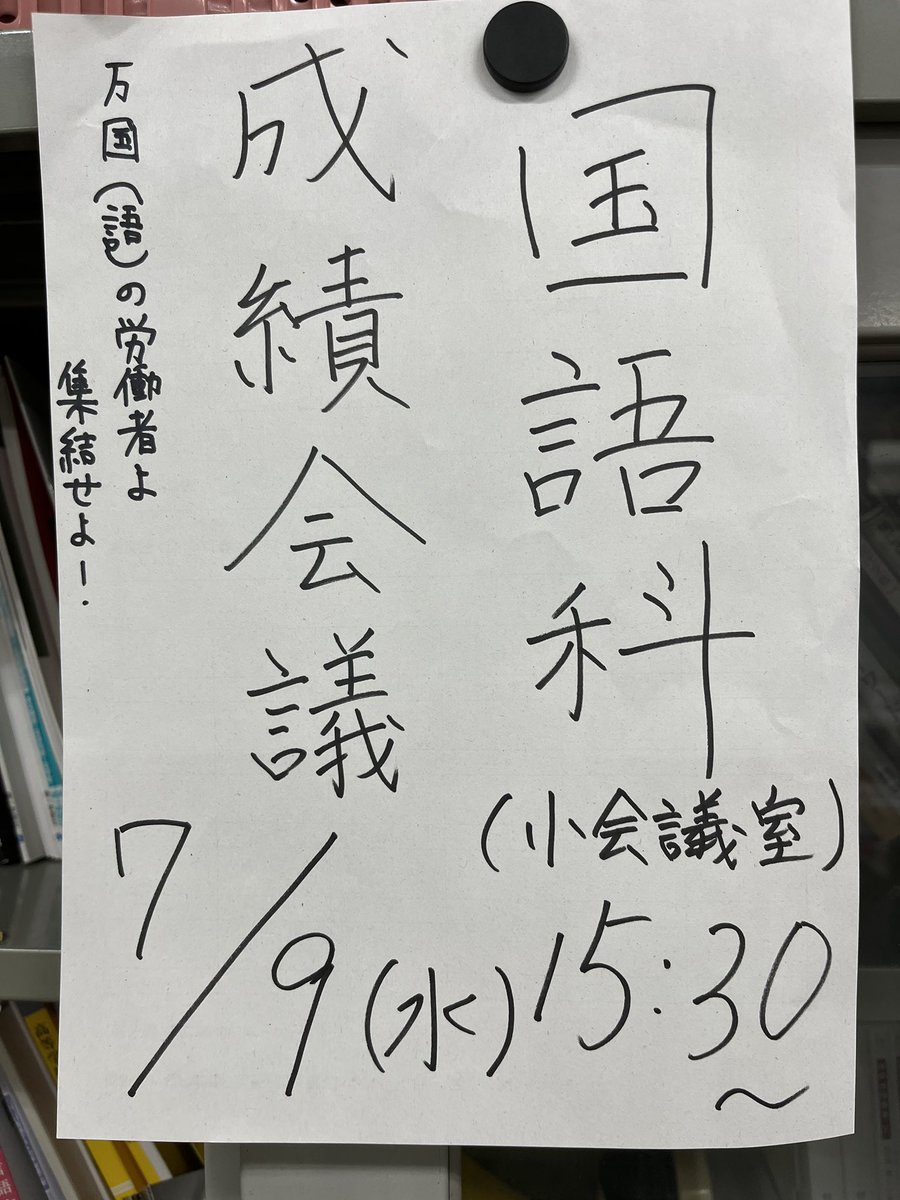 国語科
(小会議室)
成績会議
万国(語)の労働者よ
集結せよ!
7/9(水)15:30
~